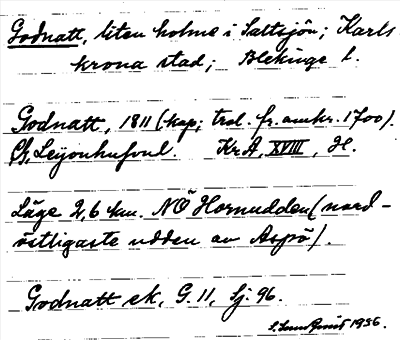 Godnatt, liten holme i Saltsjön; Karls
krona stad; Blekinge l.
Godnatt, 1811 (kop; trol. fr. omkr. 1700).
Ch. Leijonhufvud. Kr A, XVIII, H.
Läge 2,6 km. NÖ Hornudden (nord-
östligaste udden av Aspö).
Godnatt ek, G. 11, Sj. 96.
1936.